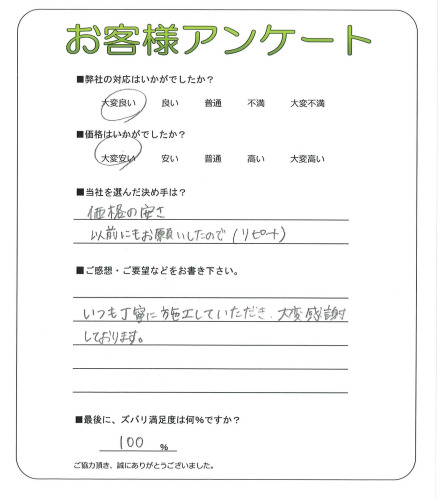 お客様アンケート
■弊社の対応はいかがでしたか？
大変良い 良い 普通 不満 大変不満
■価格はいかがでしたか？
大変安い 安い 普通 高い 大変高い
■当社を選んだ決め手は？
価格の安さ
以前にもお願いしたので（リピート）
■ご感想・ご要望などをお書き下さい。
いつも丁寧に施工していただき、大変感謝
しております。
■最後に、ズバリ満足度は何％ですか？
100 ％
ご協力頂き、誠にありがとうございました。